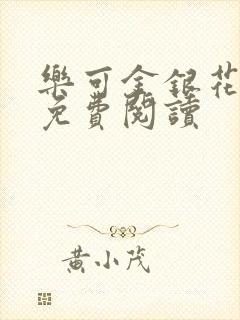 樂可金銀花
免費閱讀
黃小茂